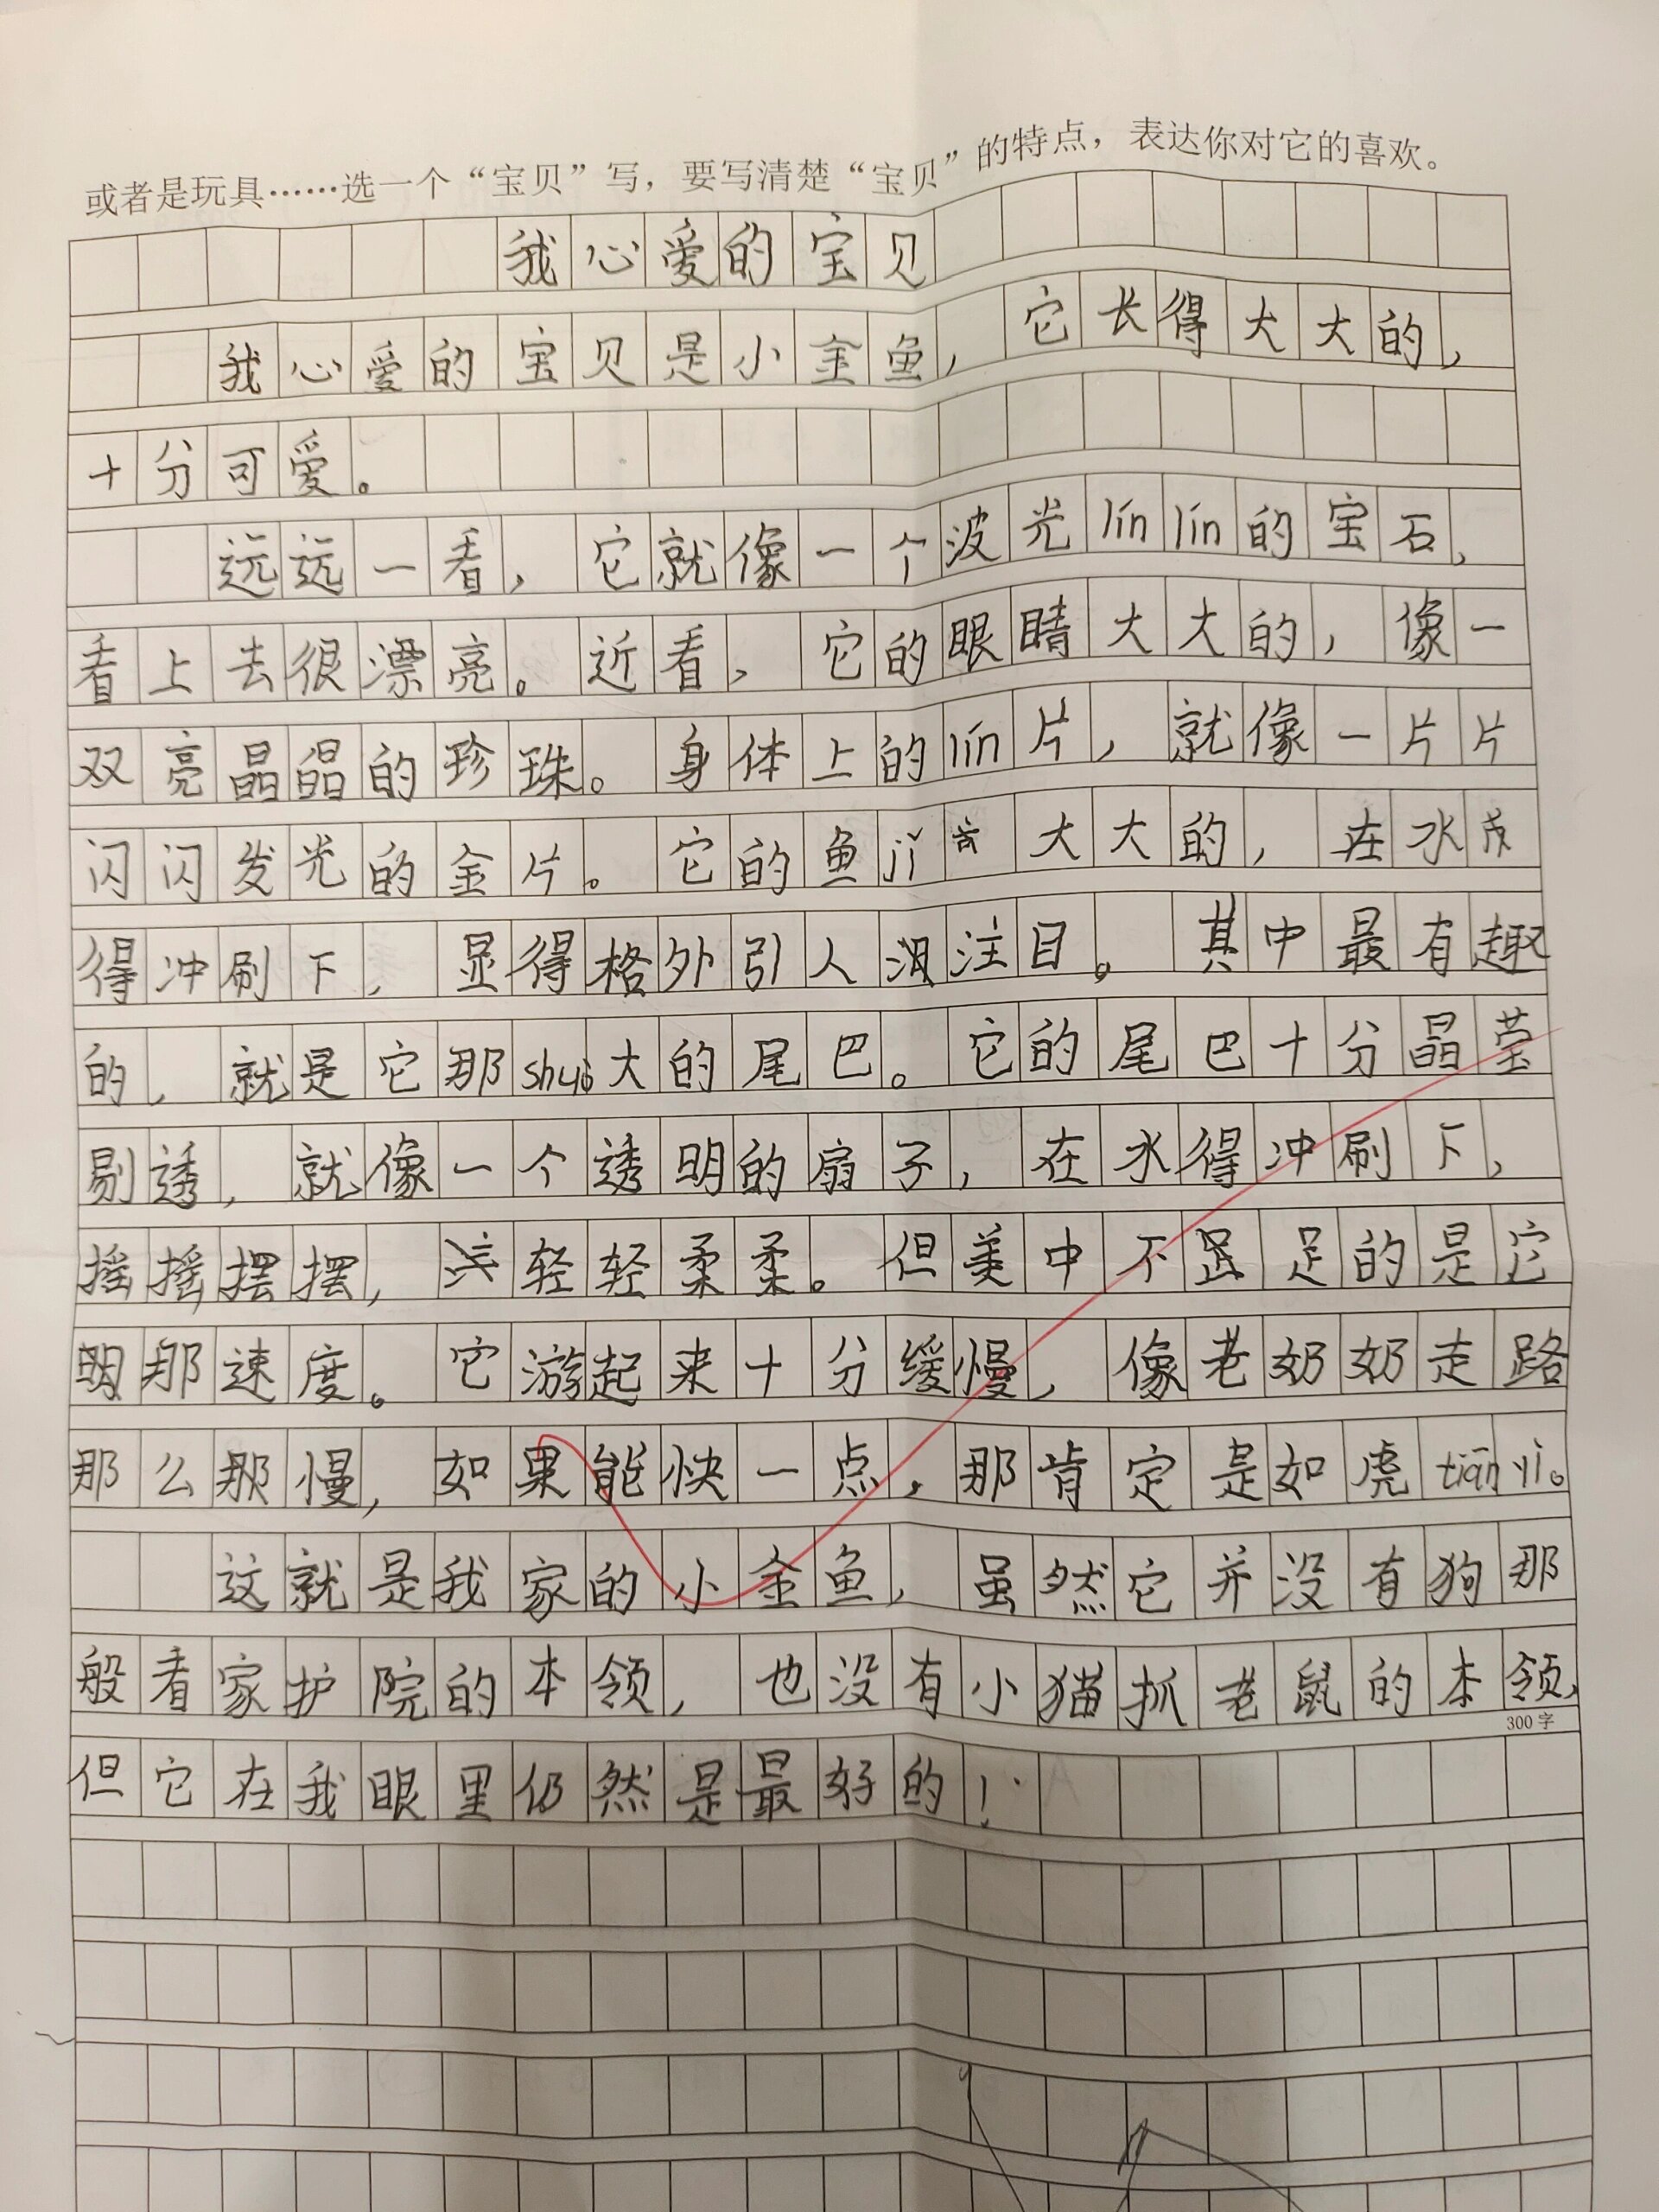 或者是玩具……选一个“宝贝”写，要写清楚“宝贝”的特点，表达你对它的喜欢。
我心爱的宝贝
我心爱的宝贝是小金鱼，它长得大大的，
十分可爱。
远远一看，它就像一个波光lín lín的宝石，
看上去很漂亮。近看，它的眼睛大大的，像一
双亮晶晶的珍珠。身体上的lín片，就像一片片
闪闪发光的金片。它的鱼jǐ大大的，在水
得冲刷下，显得格外引人注目。其中最有趣
的，就是它那shuò大的尾巴。它的尾巴十分晶莹
剔透，就像一个透明的扇子，在水得冲刷下，
摇摇摆摆，轻轻柔柔。但美中不足的是它
那速度。它游起来十分缓慢，像老奶奶走路
那么那慢，如果能快一点，那肯定是如虎tiān yì。
这就是我家的小金鱼，虽然它并没有狗那
般看家护院的本领，也没有小猫抓老鼠的本领，
300字
但它在我眼里仍然是最好的！